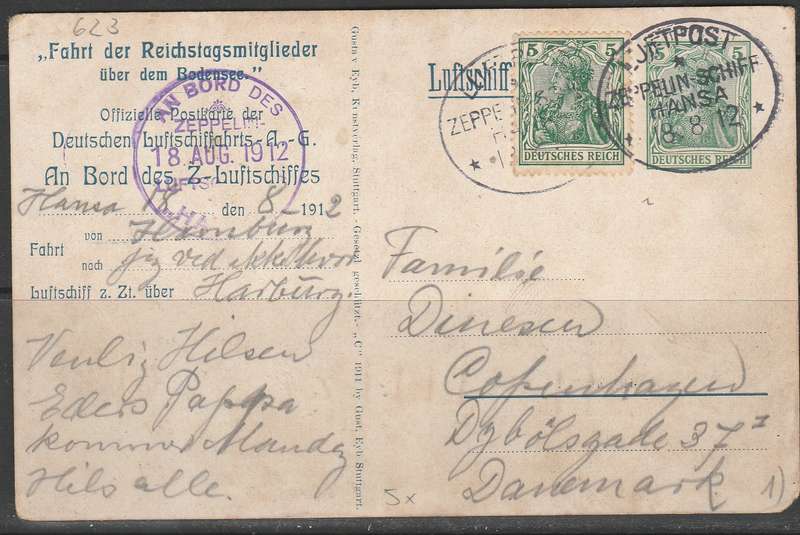 623
„Fahrt der Reichstagsmitglieder
über dem Bodensee."
Offizielle Postkarte der
Deutschen Luftschiffahrts-A.-G.
An Bord des Z-Luftschiffes
Hansa 18 den 8-1912
von Hamburg
Fahrt
nach jeg ved ikke hvor
Luftschiff z. Zt. über Harburg.
Venlig Hilsen
Eders Pappa
kommer Mandag
Hils alle.
AN BORD DES
ZEPPELIN-
18 AUG. 1912
Gustav Eyb, Kunstverlag, Stuttgart. - Gesetzl geschützt. - „C" 1911 by Gust. Eyb Stuttgart.
Luftschiff
ZEPPE
5 5
DEUTSCHES REICH
LUFTPOST
ZEPPELIN-SCHIFF
HANSA
18 8 12
5 5
DEUTSCHES REICH
Familie
Dinesen
Copenhagen
Dybölsgade 37 I
Danemark
5x
1)